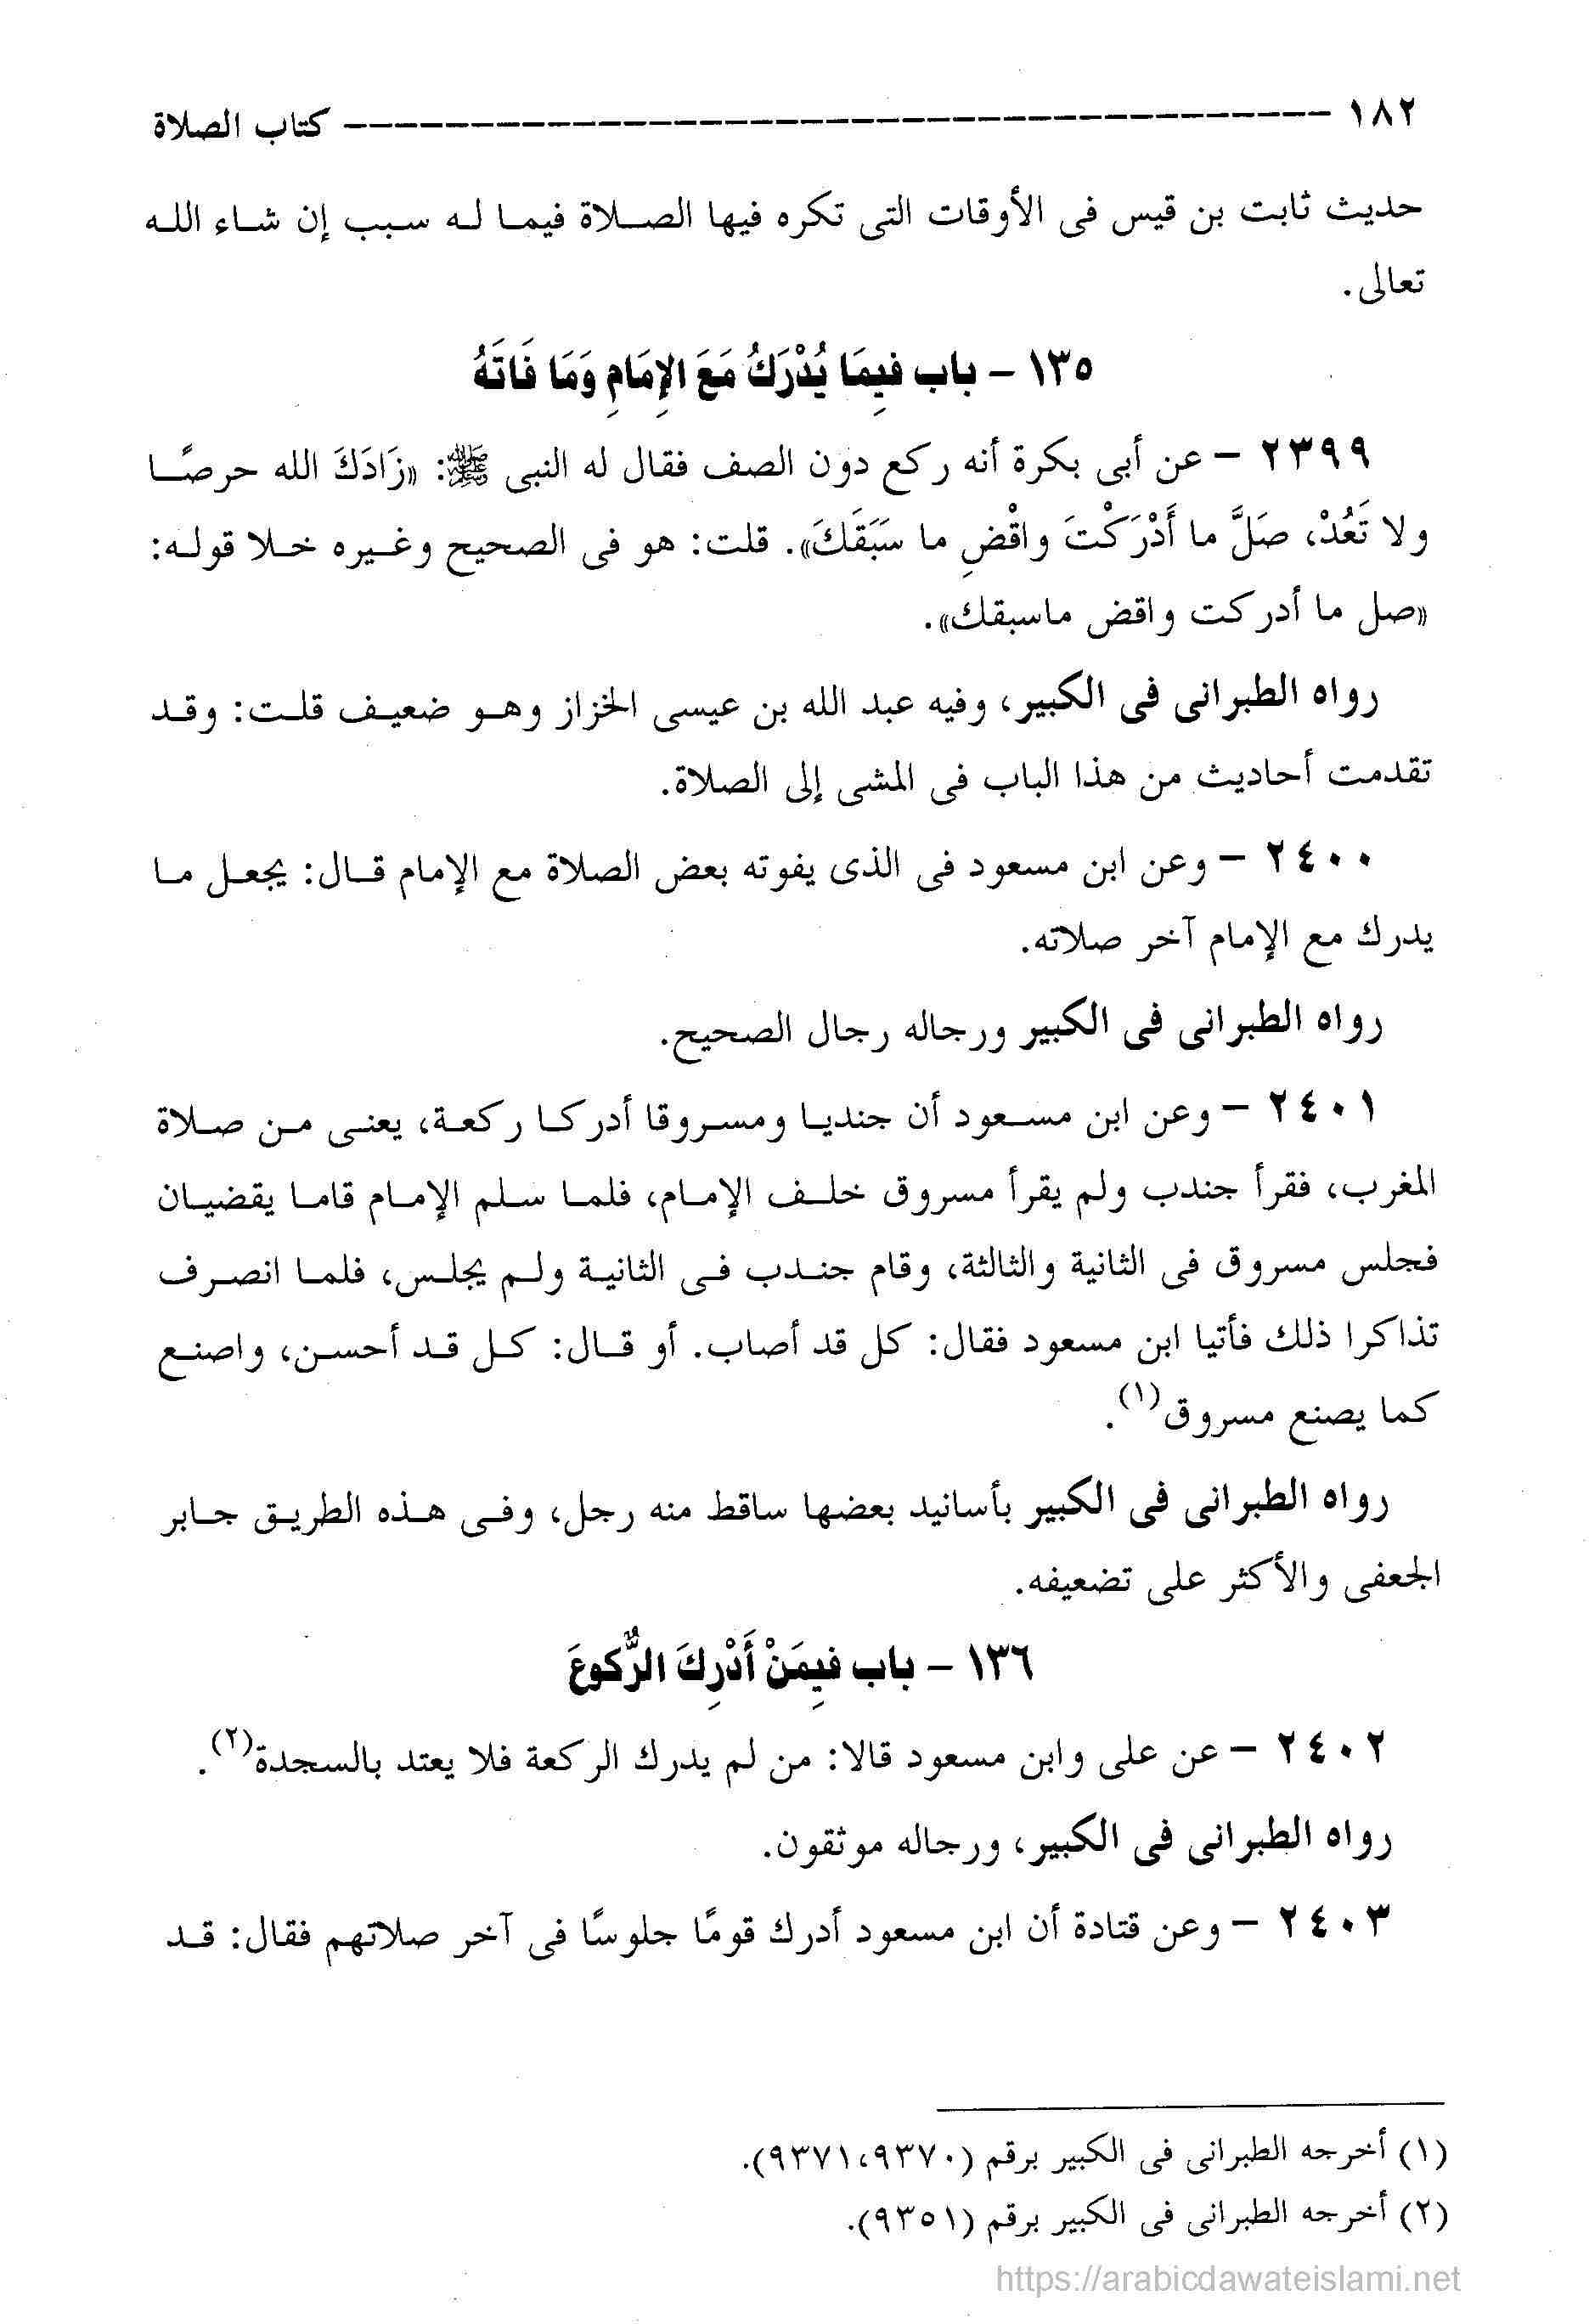 ١٨٢ ---------------------------------------- كتاب الصلاة
حديث ثابت بن قيس فى الأوقات التى تكره فيها الصلاة فيما له سبب إن شاء الله
تعالى.
١٣٥ – باب فِيمَا يُدْرَكُ مَعَ الإِمَامِ وَمَا فَاتَهُ
٢٣٩٩ – عن أبى بكرة أنه ركع دون الصف فقال له النبى ﷺ: «زَادَكَ الله حرصًا
ولا تَعُدْ، صَلَّ ما أَدْرَكْتَ واقْضِ ما سَبَقَكَ». قلت: هو فى الصحيح وغيره خلا قوله:
«صل ما أدركت واقض ماسبقك».
رواه الطبرانى فى الكبير، وفيه عبد الله بن عيسى الخزاز وهو ضعيف قلت: وقد
تقدمت أحاديث من هذا الباب فى المشى إلى الصلاة.
٢٤٠٠ – وعن ابن مسعود فى الذى يفوته بعض الصلاة مع الإمام قال: يجعل ما
يدرك مع الإمام آخر صلاته.
رواه الطبرانى فى الكبير ورجاله رجال الصحيح.
٢٤٠١ – وعن ابن مسعود أن جنديا ومسروقا أدركا ركعة، يعنى من صلاة
المغرب، فقرأ جندب ولم يقرأ مسروق خلف الإمام، فلما سلم الإمام قاما يقضيان
فجلس مسروق فى الثانية والثالثة، وقام جندب فى الثانية ولم يجلس، فلما انصرف
تذاكرا ذلك فأتيا ابن مسعود فقال: كل قد أصاب. أو قال: كل قد أحسن، واصنع
كما يصنع مسروق(١).
رواه الطبرانى فى الكبير بأسانيد بعضها ساقط منه رجل، وفى هذه الطريق جابر
الجعفى والأكثر على تضعيفه.
١٣٦ – باب فِيمَنْ أَدْرِكَ الرُّكوعَ
٢٤٠٢ – عن على وابن مسعود قالا: من لم يدرك الركعة فلا يعتد بالسجدة(٢).
رواه الطبرانى فى الكبير، ورجاله موثقون.
٢٤٠٣ – وعن قتادة أن ابن مسعود أدرك قومًا جلوسًا فى آخر صلاتهم فقال: قد
(١) أخرجه الطبرانى فى الكبير برقم (٩٣٧٠،٩٣٧١).
(٢) أخرجه الطبرانى فى الكبير برقم (٩٣٥١).
https://arabicdawateislami.net